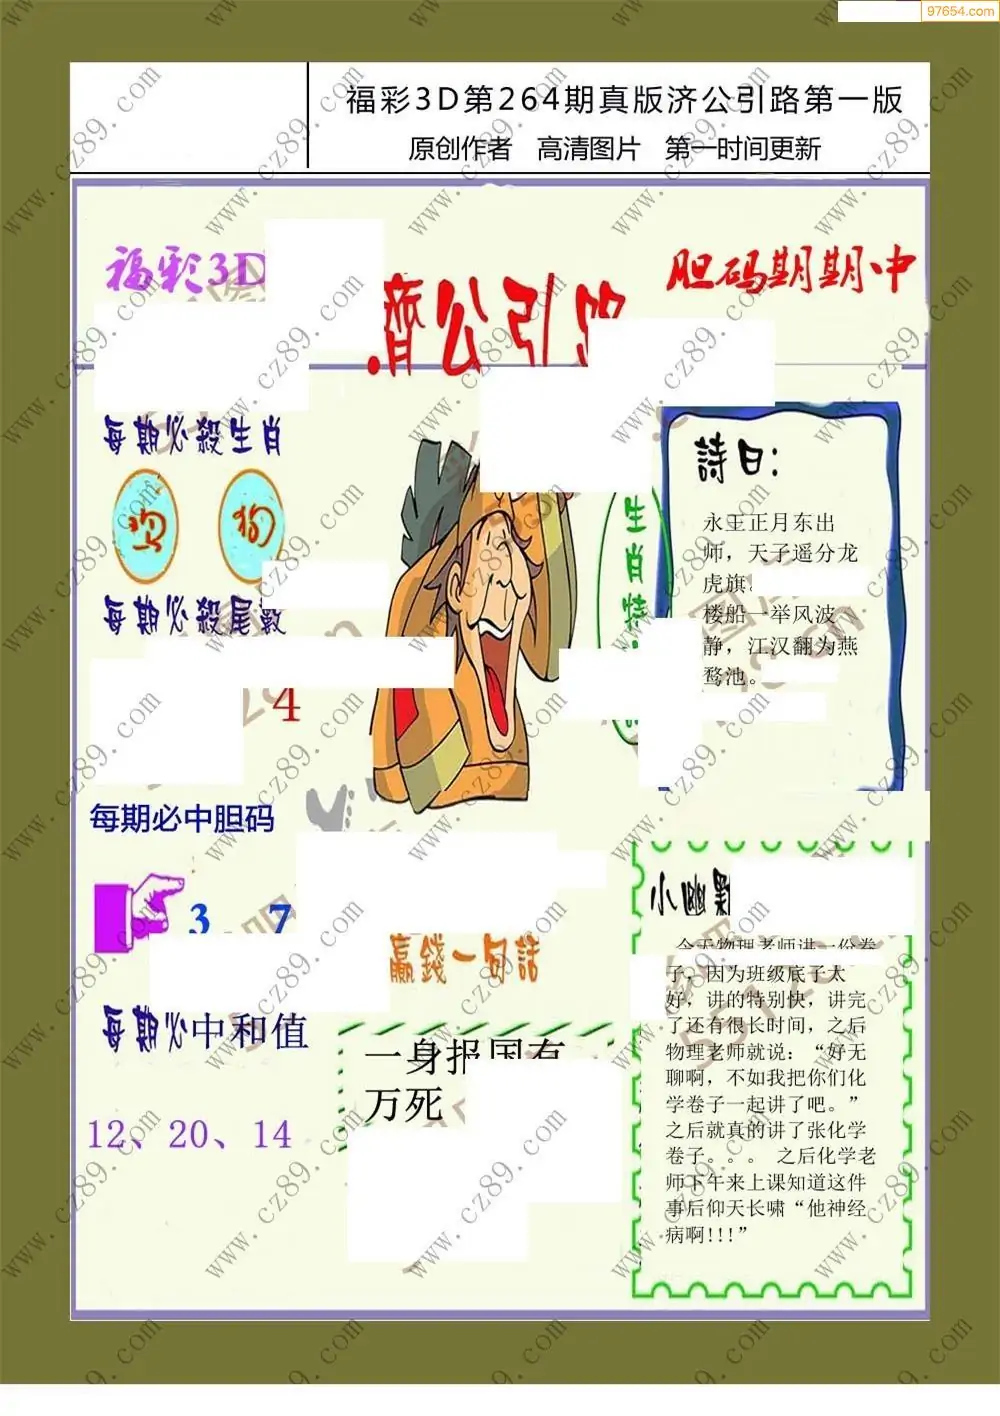 97654.com
福彩3D第264期真版济公引路第一版
原创作者 高清图片 第一时间更新
福彩3D
济公引路
胆码期期中
每期必殺生肖
鸡 狗
每期必殺尾數
4
生肖特
詩曰:
永王正月东出
师，天子遥分龙
虎旗
楼船一举风波
静，江汉翻为燕
鹜池。
每期必中胆码
3、7
每期必中和值
12、20、14
贏錢一句話
一身报国有
万死
小幽默
今天物理老师讲一份卷
子，因为班级底子太
好，讲的特别快，讲完
了还有很长时间，之后
物理老师就说：“好无
聊啊，不如我把你们化
学卷子一起讲了吧。”
之后就真的讲了张化学
卷子。。。 之后化学老
师下午来上课知道这件
事后仰天长啸“他神经
病啊!!!”
www.cz89.com